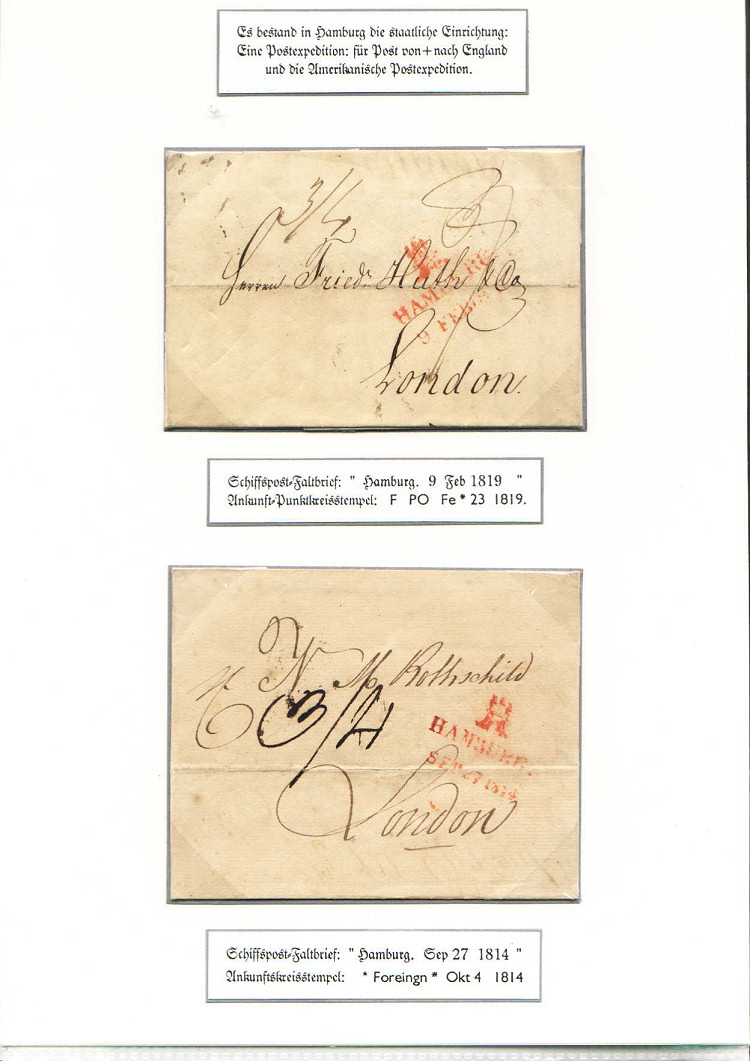 Es bestand in Hamburg die staatliche Einrichtung:
Eine Postexpedition: für Post von + nach England
und die Amerikanische Postexpedition.
3/4
Herren Friedr. Huth & Co
HAMBURG
9 FEB
London.
Schiffspost-Faltbrief: " Hamburg. 9 Feb 1819 "
Ankunft-Punktkreisstempel: F PO Fe * 23 1819.
N M Rothschild
3/4
HAMBURG.
SEP. 27 1814
London
Schiffspost-Faltbrief: " Hamburg. Sep 27 1814 "
Ankunftskreisstempel: * Foreingn * Okt 4 1814